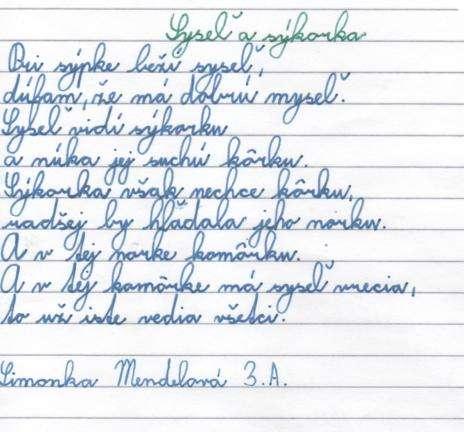 Syseľ a sýkorka
Pri sýpke beží syseľ,
dúfam, že má dobrú myseľ.
Syseľ vidí sýkorku
a núka jej suchú kôrku.
Sýkorka však nechce kôrku,
radšej by hľadala jeho norku.
A v tej norke komôrku.
A v tej komôrke má syseľ vrecia,
to už iste vedia všetci.
Simonka Mendelová 3.A.